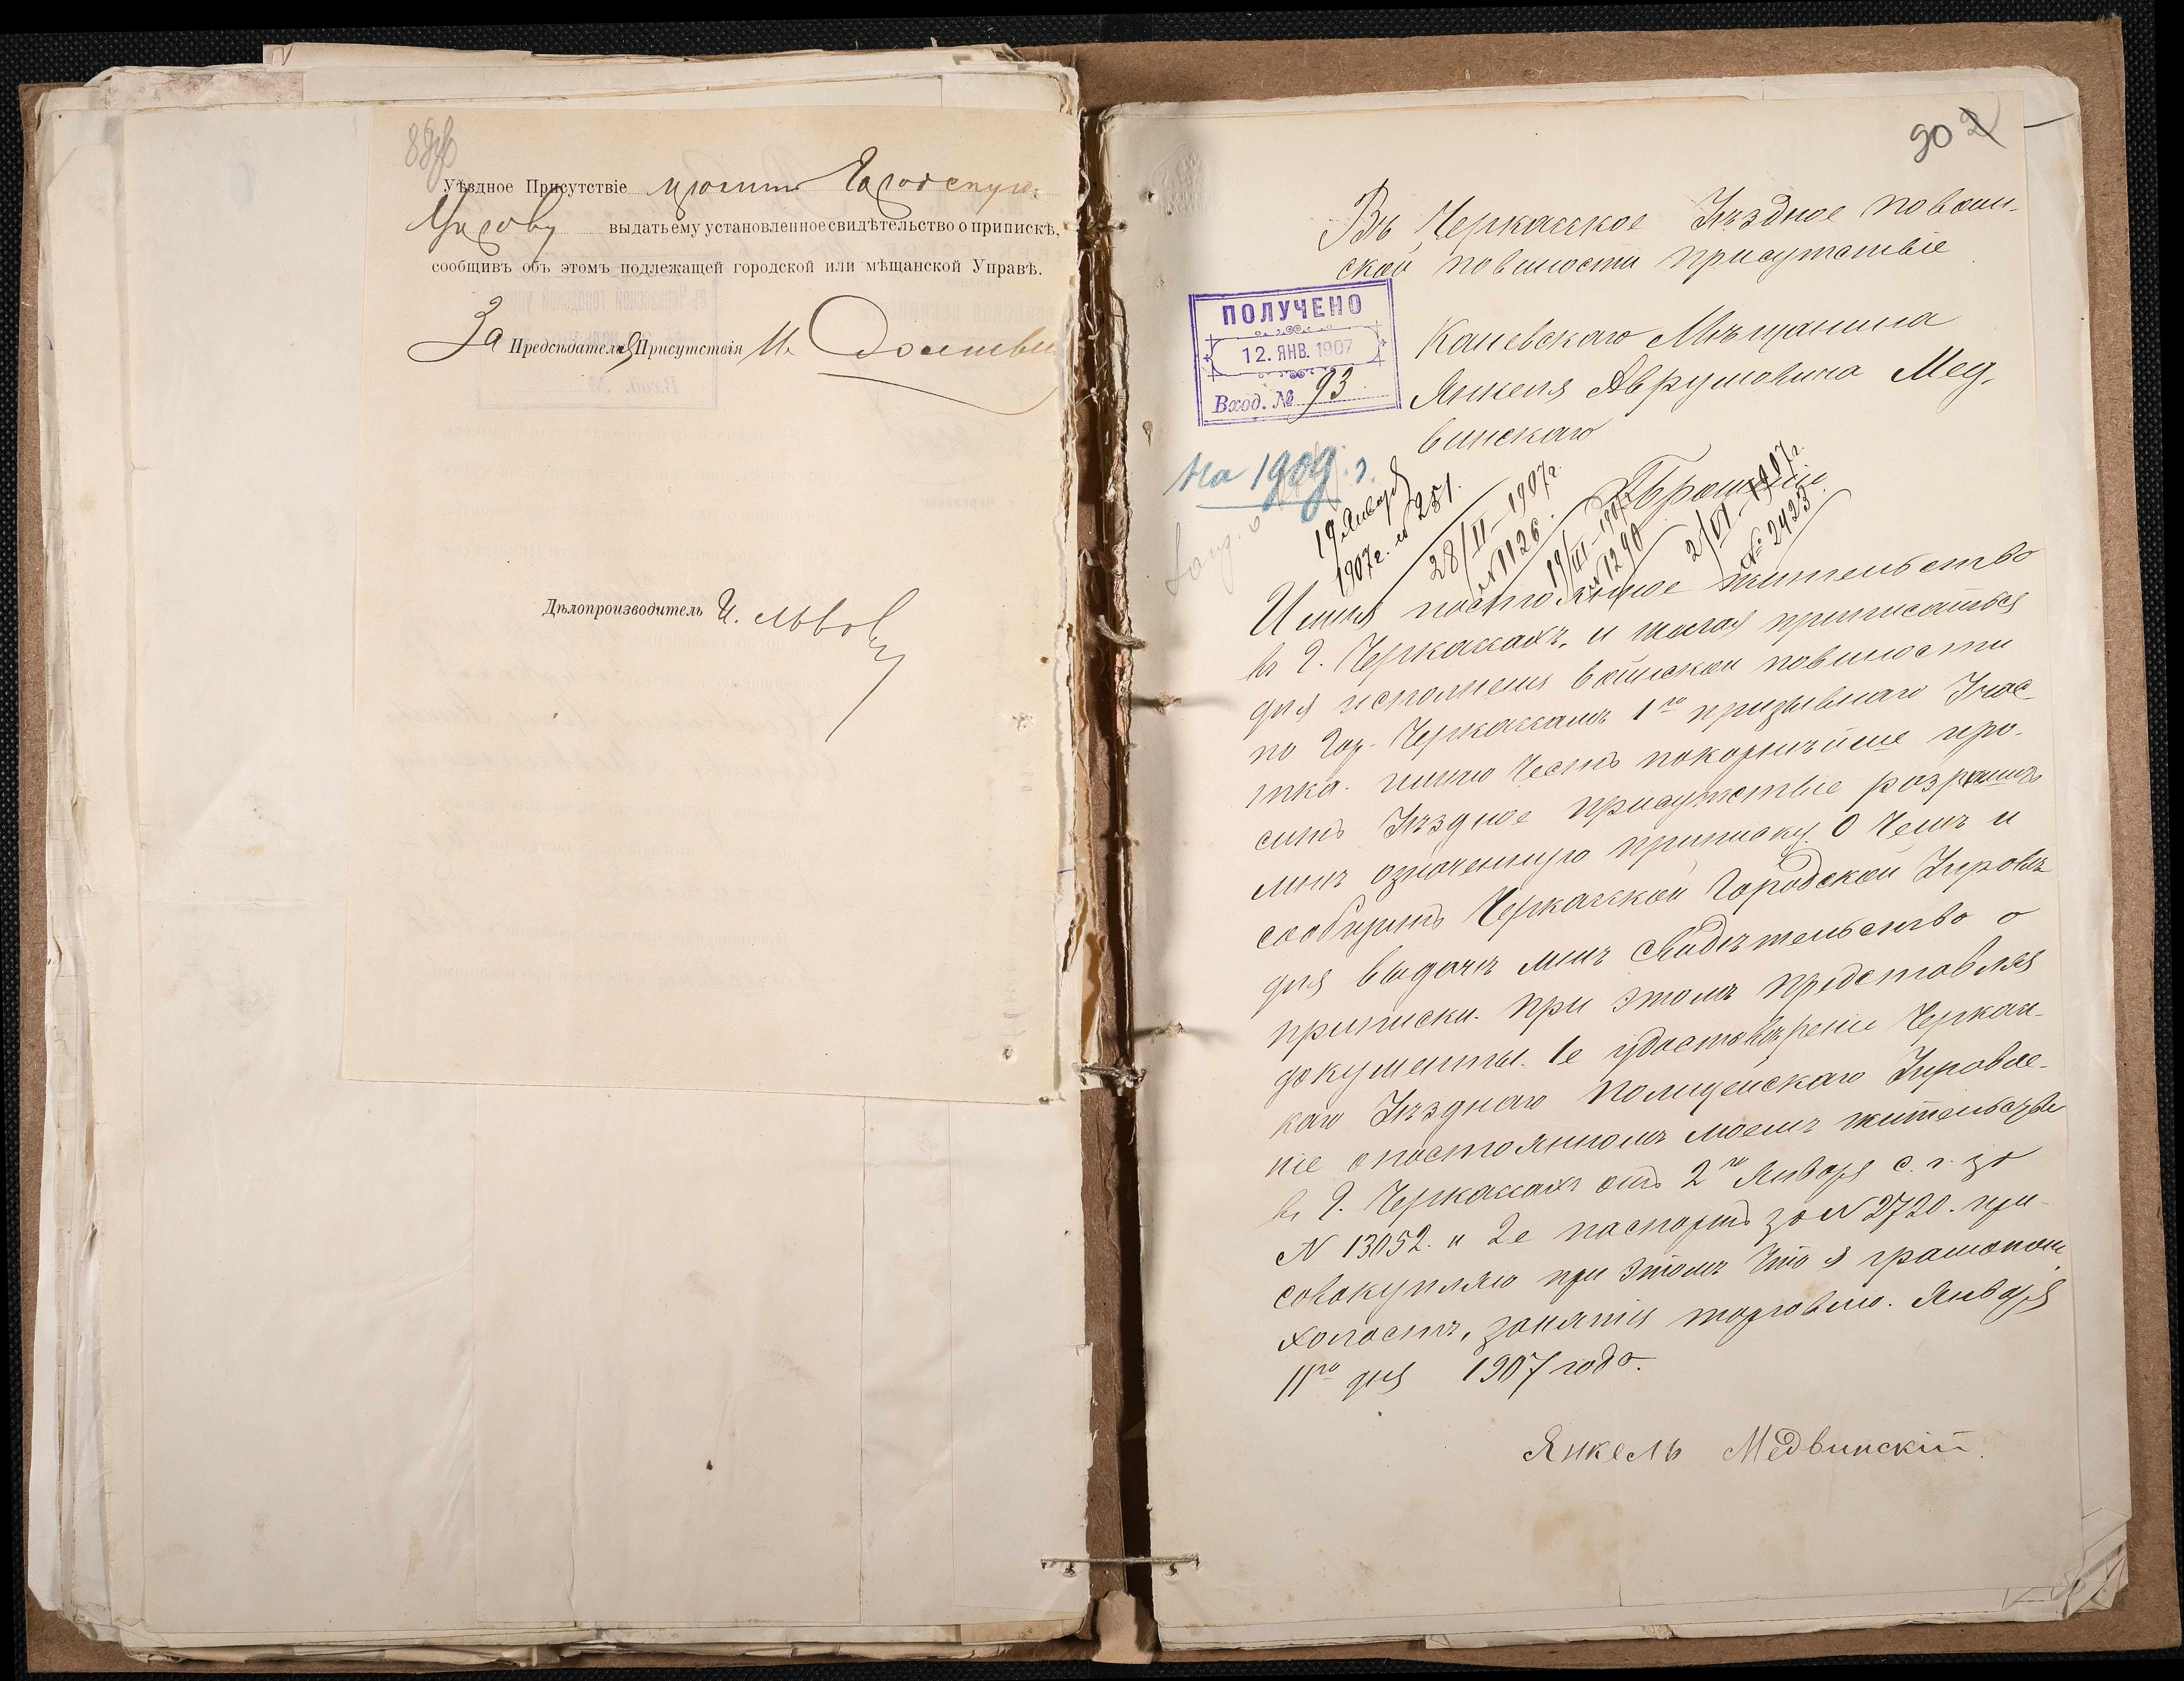 Уѣздное Присутствіе проситъ Городскую
Управу выдать ему установленное свидѣтельство о припискѣ,
сообщивъ объ этомъ подлежащей городской или мѣщанской Управѣ.
За Предсѣдателя Присутствія
Дѣлопроизводитель И. Львов
90
Въ Черкасское Уѣздное по воин-
ской повиности присутствіе
ПОЛУЧЕНО
12. ЯНВ. 1907
Вход. № 93
Каневскаго Мѣщанина
Янкеля Аврумовича Мед-
винскаго
На 1909 г.
Прошеніе
19 Января
1907 г. № 251.
28/II–1907 г.
№ 1126.
19/III–1907 г.
№ 1290
2/VI–1907 г.
№ 2423
Имѣя постоянное жительство
въ г. Черкассахъ, и желая приписаться
для исполненія воинской повиности
по гор. Черкассамъ 1го призывнаго Учас-
тка. имѣю честь покорнѣйше про-
сить Уѣздное присутствіе розрѣшить
мнѣ означенную приписку. О чемъ и
сообщить Черкасской Городской Управѣ
для выдачи мнѣ свидѣтельство о
приписки. При этомъ представляя
документы. 1е удостовѣреніе Черкас-
каго Уѣзднаго Полицейскаго Управле-
ніе о постоянномъ моемъ жительствѣ
въ г. Черкассахъ отъ 2го Января с. г. за
N 13052. и 2е паспортъ за N 2720. при-
совокупляю при этомъ что я грамотенъ
холостъ, занятія торговлю. Января
11го дня 1907 года.
Янкель Медвинскій.